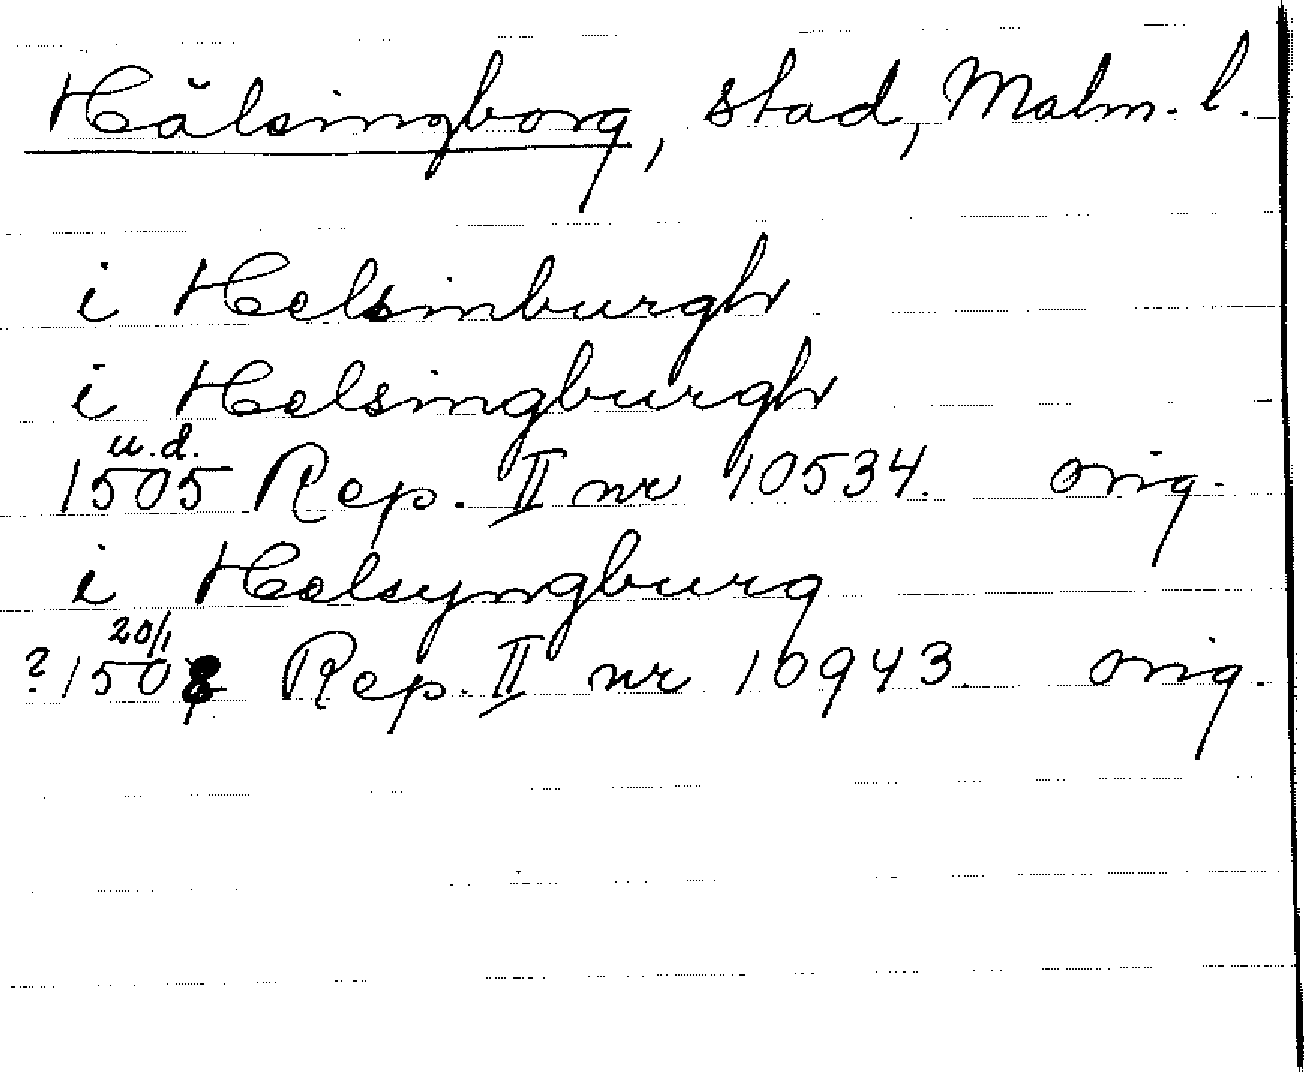 Hälsingborg, stad, Malm. l.
i Helsinburgh
i Helsingburgh
u.d.
1505 Rep. II nr 10534. orig.
i Helsyngburg
20/1
? 150 Rep. II nr 10943. orig.